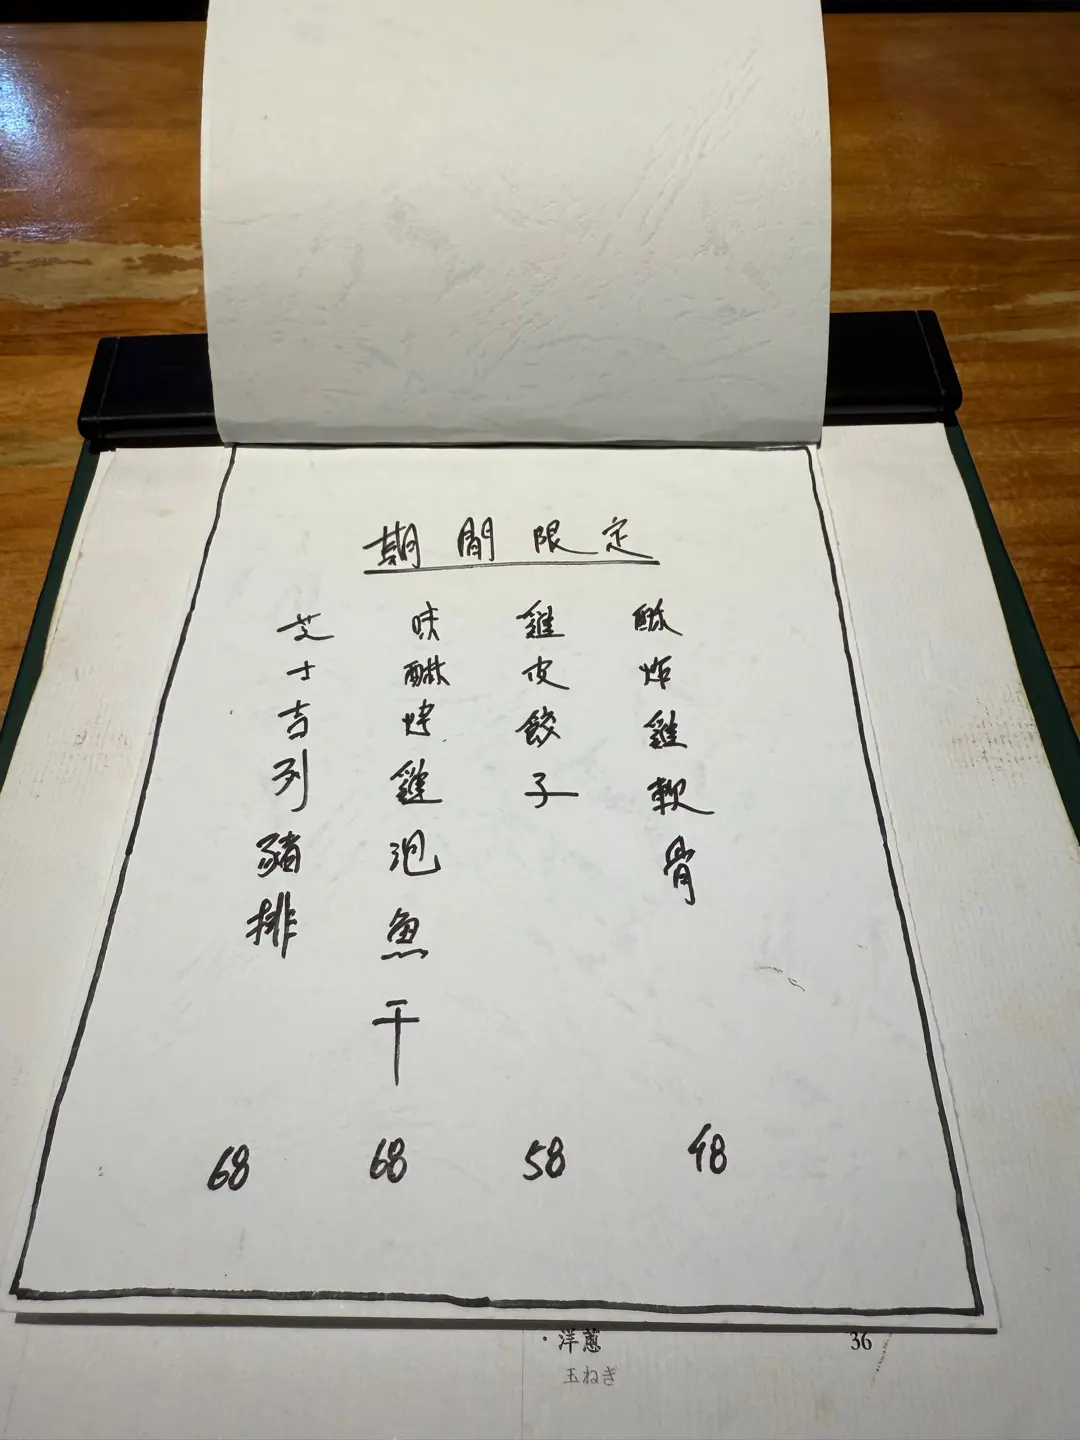 期間限定
酥炸雞軟骨
48
雞皮餃子
58
味醂烤雞泡魚干
68
芝士吉列豬排
68
·洋蔥
36
玉ねぎ